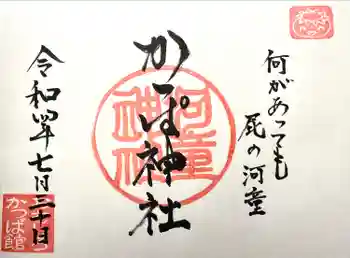 何があっても
屁の河童
かっぱ神社
河童
神社
令和四年七月三十日
かっぱ館